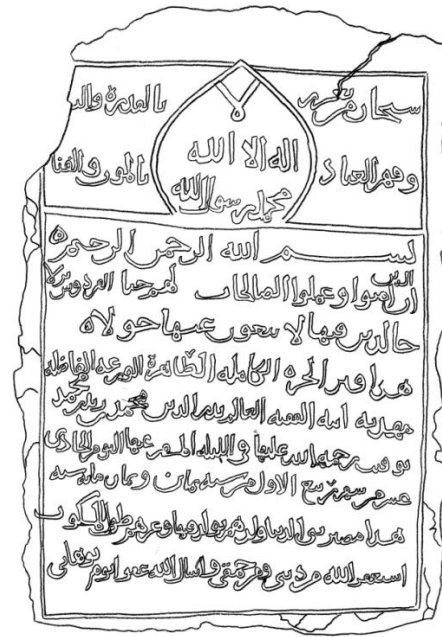 سبحان من تعزز بالقدرة والبـ
وقهر العباد بالموت والفنا
اله الا الله
محمد رسول الله
بسم الله الرحمن الرحيم
ان الذين امنوا وعملوا الصالحات لهم جنات الفردوس نزلا
خالدين فيها لا يبغون عنها حولا
هذا قبر الحرة الكاملة الطاهرة الفاضله
ابنة الفقيه العالم بدر الدين محمد بن محمد
رحمة الله عليها في الليلة المسفر عنها اليوم الحادي
عشر من شهر ربيع الاول من سنة ثمان وثمان مائة سنة
هذا مصير بني الدنيا وان وغرهم طول
استغفر الله من ذنبي ومن واسال الله عفوا يوم